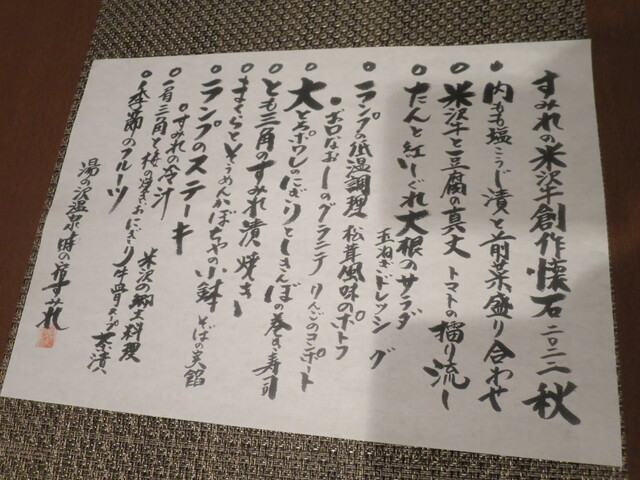 すみれの米沢牛創作懐石 二〇二二 秋
内もも塩こうじ漬と前菜盛り合わせ
米沢牛と豆腐の真丈 トマトの擂り流し
たんと紅しぐれ大根のサラダ
玉ねぎドレッシング
ランプの低温調理 松茸風味のポトフ
お口なおしのグラニテ りんごのコンポート
大とろポワレのにぎりとしきんぼの巻き寿司
とも三角のすみれ漬焼き
まくらとそうめんかぼちゃの小鉢 そばの実餡
ランプのステーキ
すみれの冷汁 米沢の郷土料理
肩三角と梅の焼きおにぎり 牛骨スープ茶漬
季節のフルーツ
湯の沢温泉 時の宿すみれ